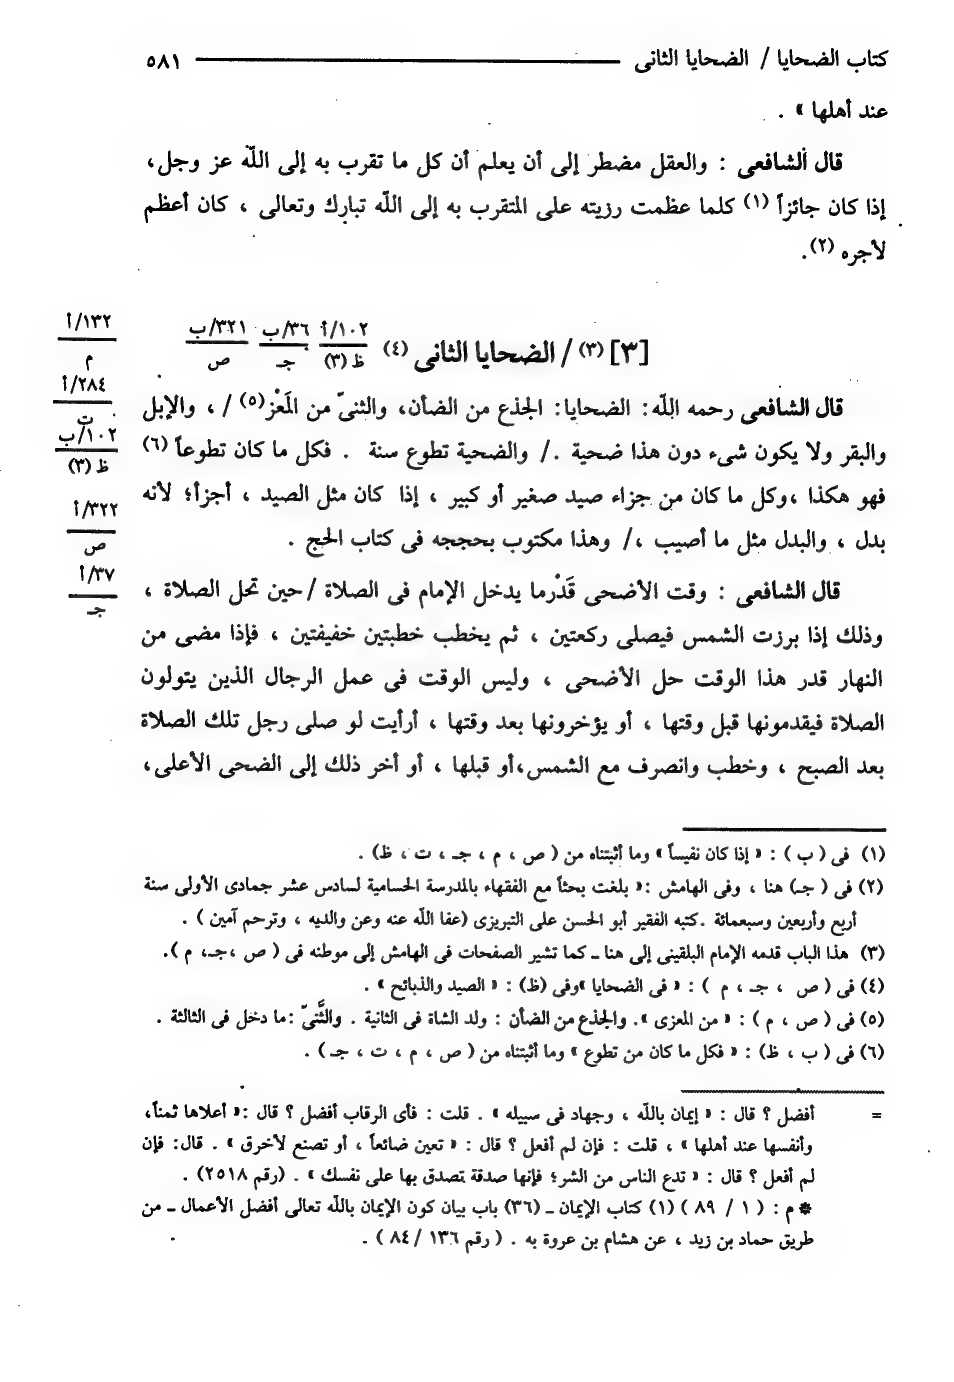 كتاب الضحايا / الضحايا الثانى ٥٨١
عند أهلها » .
قال الشافعى : والعقل مضطر إلى أن يعلم أن كل ما تقرب به إلى الله عز وجل،
إذا كان جائزاً (١) كلما عظمت رزيته على المتقرب به إلى الله تبارك وتعالى ، كان أعظم
لأجره (٢).
[٣] (٣) / الضحايا الثانى (٤)
١٠٢/أ
ظ (٣)
٣٦/ب
جـ
٣٢١/ب
ص
١٣٢/أ
م
٢٨٤/أ
ت
١٠٢/ب
ظ (٣)
٣٢٢/أ
ص
٣٧/أ
جـ
قال الشافعى رحمه الله: الضحايا: الجذع من الضأن، والثنىّ من المَعْز(٥) / ، والإبل
والبقر ولا يكون شىء دون هذا ضحية ./ والضحية تطوع سنة . فكل ما كان تطوعاً (٦)
فهو هكذا ،وكل ما كان من جزاء صيد صغير أو كبير ، إذا كان مثل الصيد ، أجزأ؛ لأنه
بدل ، والبدل مثل ما أصيب ،/ وهذا مكتوب بحججه فى كتاب الحج .
قال الشافعى : وقت الأضحى قَدْرما يدخل الإمام فى الصلاة /حين تحل الصلاة ،
وذلك إذا برزت الشمس فيصلى ركعتين ، ثم يخطب خطبتين خفيفتين ، فإذا مضى من
النهار قدر هذا الوقت حل الأضحى ، وليس الوقت فى عمل الرجال الذين يتولون
الصلاة فيقدمونها قبل وقتها ، أو يؤخرونها بعد وقتها ، أرأيت لو صلى رجل تلك الصلاة
بعد الصبح ، وخطب وانصرف مع الشمس،أو قبلها ، أو أخر ذلك إلى الضحى الأعلى،
(١) فى ( ب ) : « إذا كان نفيساً » وما أثبتناه من ( ص ، م ، جـ ، ت ، ظ) .
(٢) فى ( جـ) هنا ، وفى الهامش :« بلغت بحثاً مع الفقهاء بالمدرسة الحسامية لسادس عشر جمادى الأولى سنة
أربع وأربعين وسبعمائة .كتبه الفقير أبو الحسن على التبريزى (عفا الله عنه وعن والديه ، وترحم آمين ) .
(٣) هذا الباب قدمه الإمام البلقينى إلى هنا ـ كما تشير الصفحات فى الهامش إلى موطنه فى ( ص ،جـ، م ).
(٤) فى ( ص ، جـ ، م ) : « فى الضحايا »وفى (ظ) : « الصيد والذبائح » .
(٥) فى ( ص ، م ) : « من المعزى ». والجذع من الضأن : ولد الشاة فى الثانية . والثَّنىّ :ما دخل فى الثالثة .
(٦) فى ( ب ، ظ) : « فكل ما كان من تطوع » وما أثبتناه من ( ص ، م ، ت ، جـ ) .
= أفضل ؟ قال : « إيمان بالله ، وجهاد فى سبيله » . قلت : فأى الرقاب أفضل ؟ قال :« أعلاها ثمناً،
وأنفسها عند أهلها » ، قلت : فإن لم أفعل ؟ قال : « تعين ضائعاً ، أو تصنع لأخرق » . قال: فإن
لم أفعل ؟ قال : « تدع الناس من الشر؛ فإنها صدقة تصدق بها على نفسك » . (رقم ٢٥١٨) .
* م : ( ١ / ٨٩ ) (١) كتاب الإيمان ـ (٣٦) باب بيان كون الإيمان بالله تعالى أفضل الأعمال ـ من
طريق حماد بن زيد ، عن هشام بن عروة به . ( رقم ١٣٦ / ٨٤ ) .